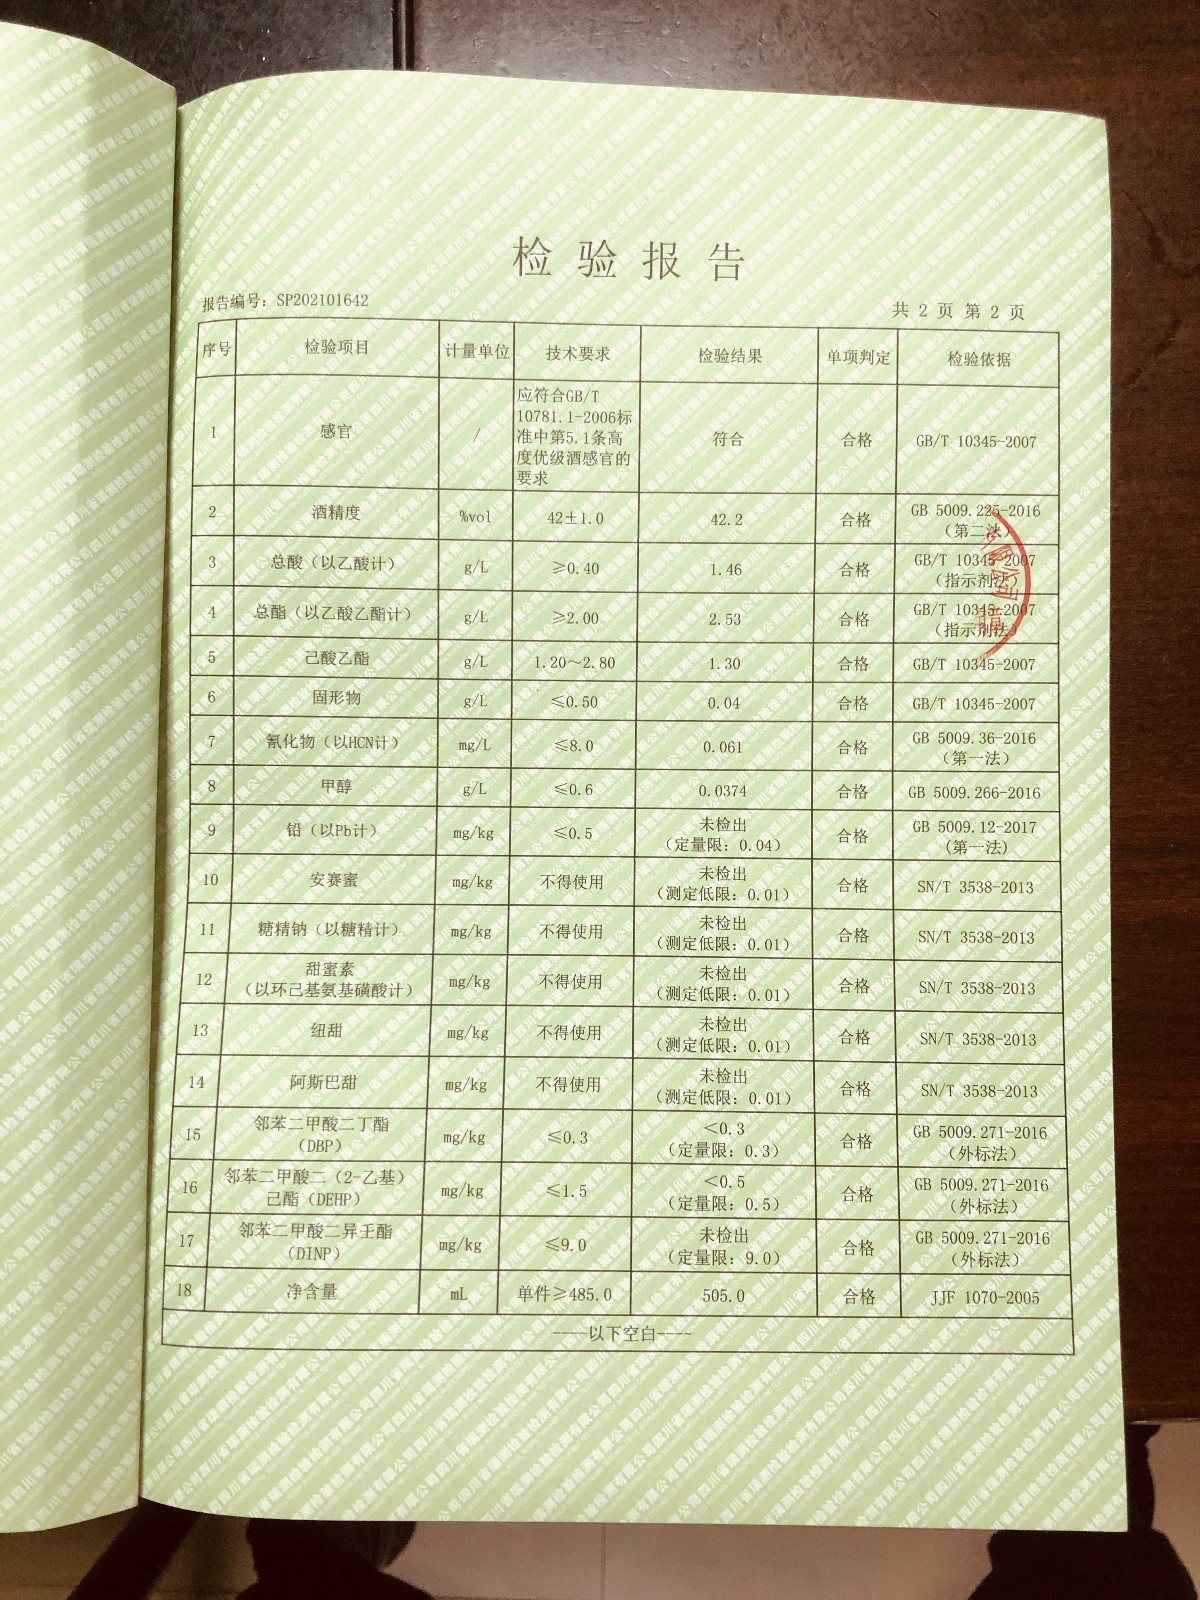 检验报告
报告编号：SP202101642
共 2 页 第 2 页
序号 检验项目 计量单位 技术要求 检验结果 单项判定 检验依据
1 感官 / 应符合GB/T 10781.1-2006标准中第5.1条高度优级酒感官的要求 符合 合格 GB/T 10345-2007
2 酒精度 %vol 42±1.0 42.2 合格 GB 5009.225-2016（第二法）
3 总酸（以乙酸计） g/L ≥0.40 1.46 合格 GB/T 10345-2007（指示剂法）
4 总酯（以乙酸乙酯计） g/L ≥2.00 2.53 合格 GB/T 10345-2007（指示剂法）
5 己酸乙酯 g/L 1.20～2.80 1.30 合格 GB/T 10345-2007
6 固形物 g/L ≤0.50 0.04 合格 GB/T 10345-2007
7 氰化物（以HCN计） mg/L ≤8.0 0.061 合格 GB 5009.36-2016（第一法）
8 甲醇 g/L ≤0.6 0.0374 合格 GB 5009.266-2016
9 铅（以Pb计） mg/kg ≤0.5 未检出（定量限：0.04） 合格 GB 5009.12-2017（第一法）
10 安赛蜜 mg/kg 不得使用 未检出（测定低限：0.01） 合格 SN/T 3538-2013
11 糖精钠（以糖精计） mg/kg 不得使用 未检出（测定低限：0.01） 合格 SN/T 3538-2013
12 甜蜜素（以环己基氨基磺酸计） mg/kg 不得使用 未检出（测定低限：0.01） 合格 SN/T 3538-2013
13 纽甜 mg/kg 不得使用 未检出（测定低限：0.01） 合格 SN/T 3538-2013
14 阿斯巴甜 mg/kg 不得使用 未检出（测定低限：0.01） 合格 SN/T 3538-2013
15 邻苯二甲酸二丁酯（DBP） mg/kg ≤0.3 <0.3（定量限：0.3） 合格 GB 5009.271-2016（外标法）
16 邻苯二甲酸二（2-乙基）己酯（DEHP） mg/kg ≤1.5 <0.5（定量限：0.5） 合格 GB 5009.271-2016（外标法）
17 邻苯二甲酸二异壬酯（DINP） mg/kg ≤9.0 未检出（定量限：9.0） 合格 GB 5009.271-2016（外标法）
18 净含量 mL 单件≥485.0 505.0 合格 JJF 1070-2005
----以下空白----